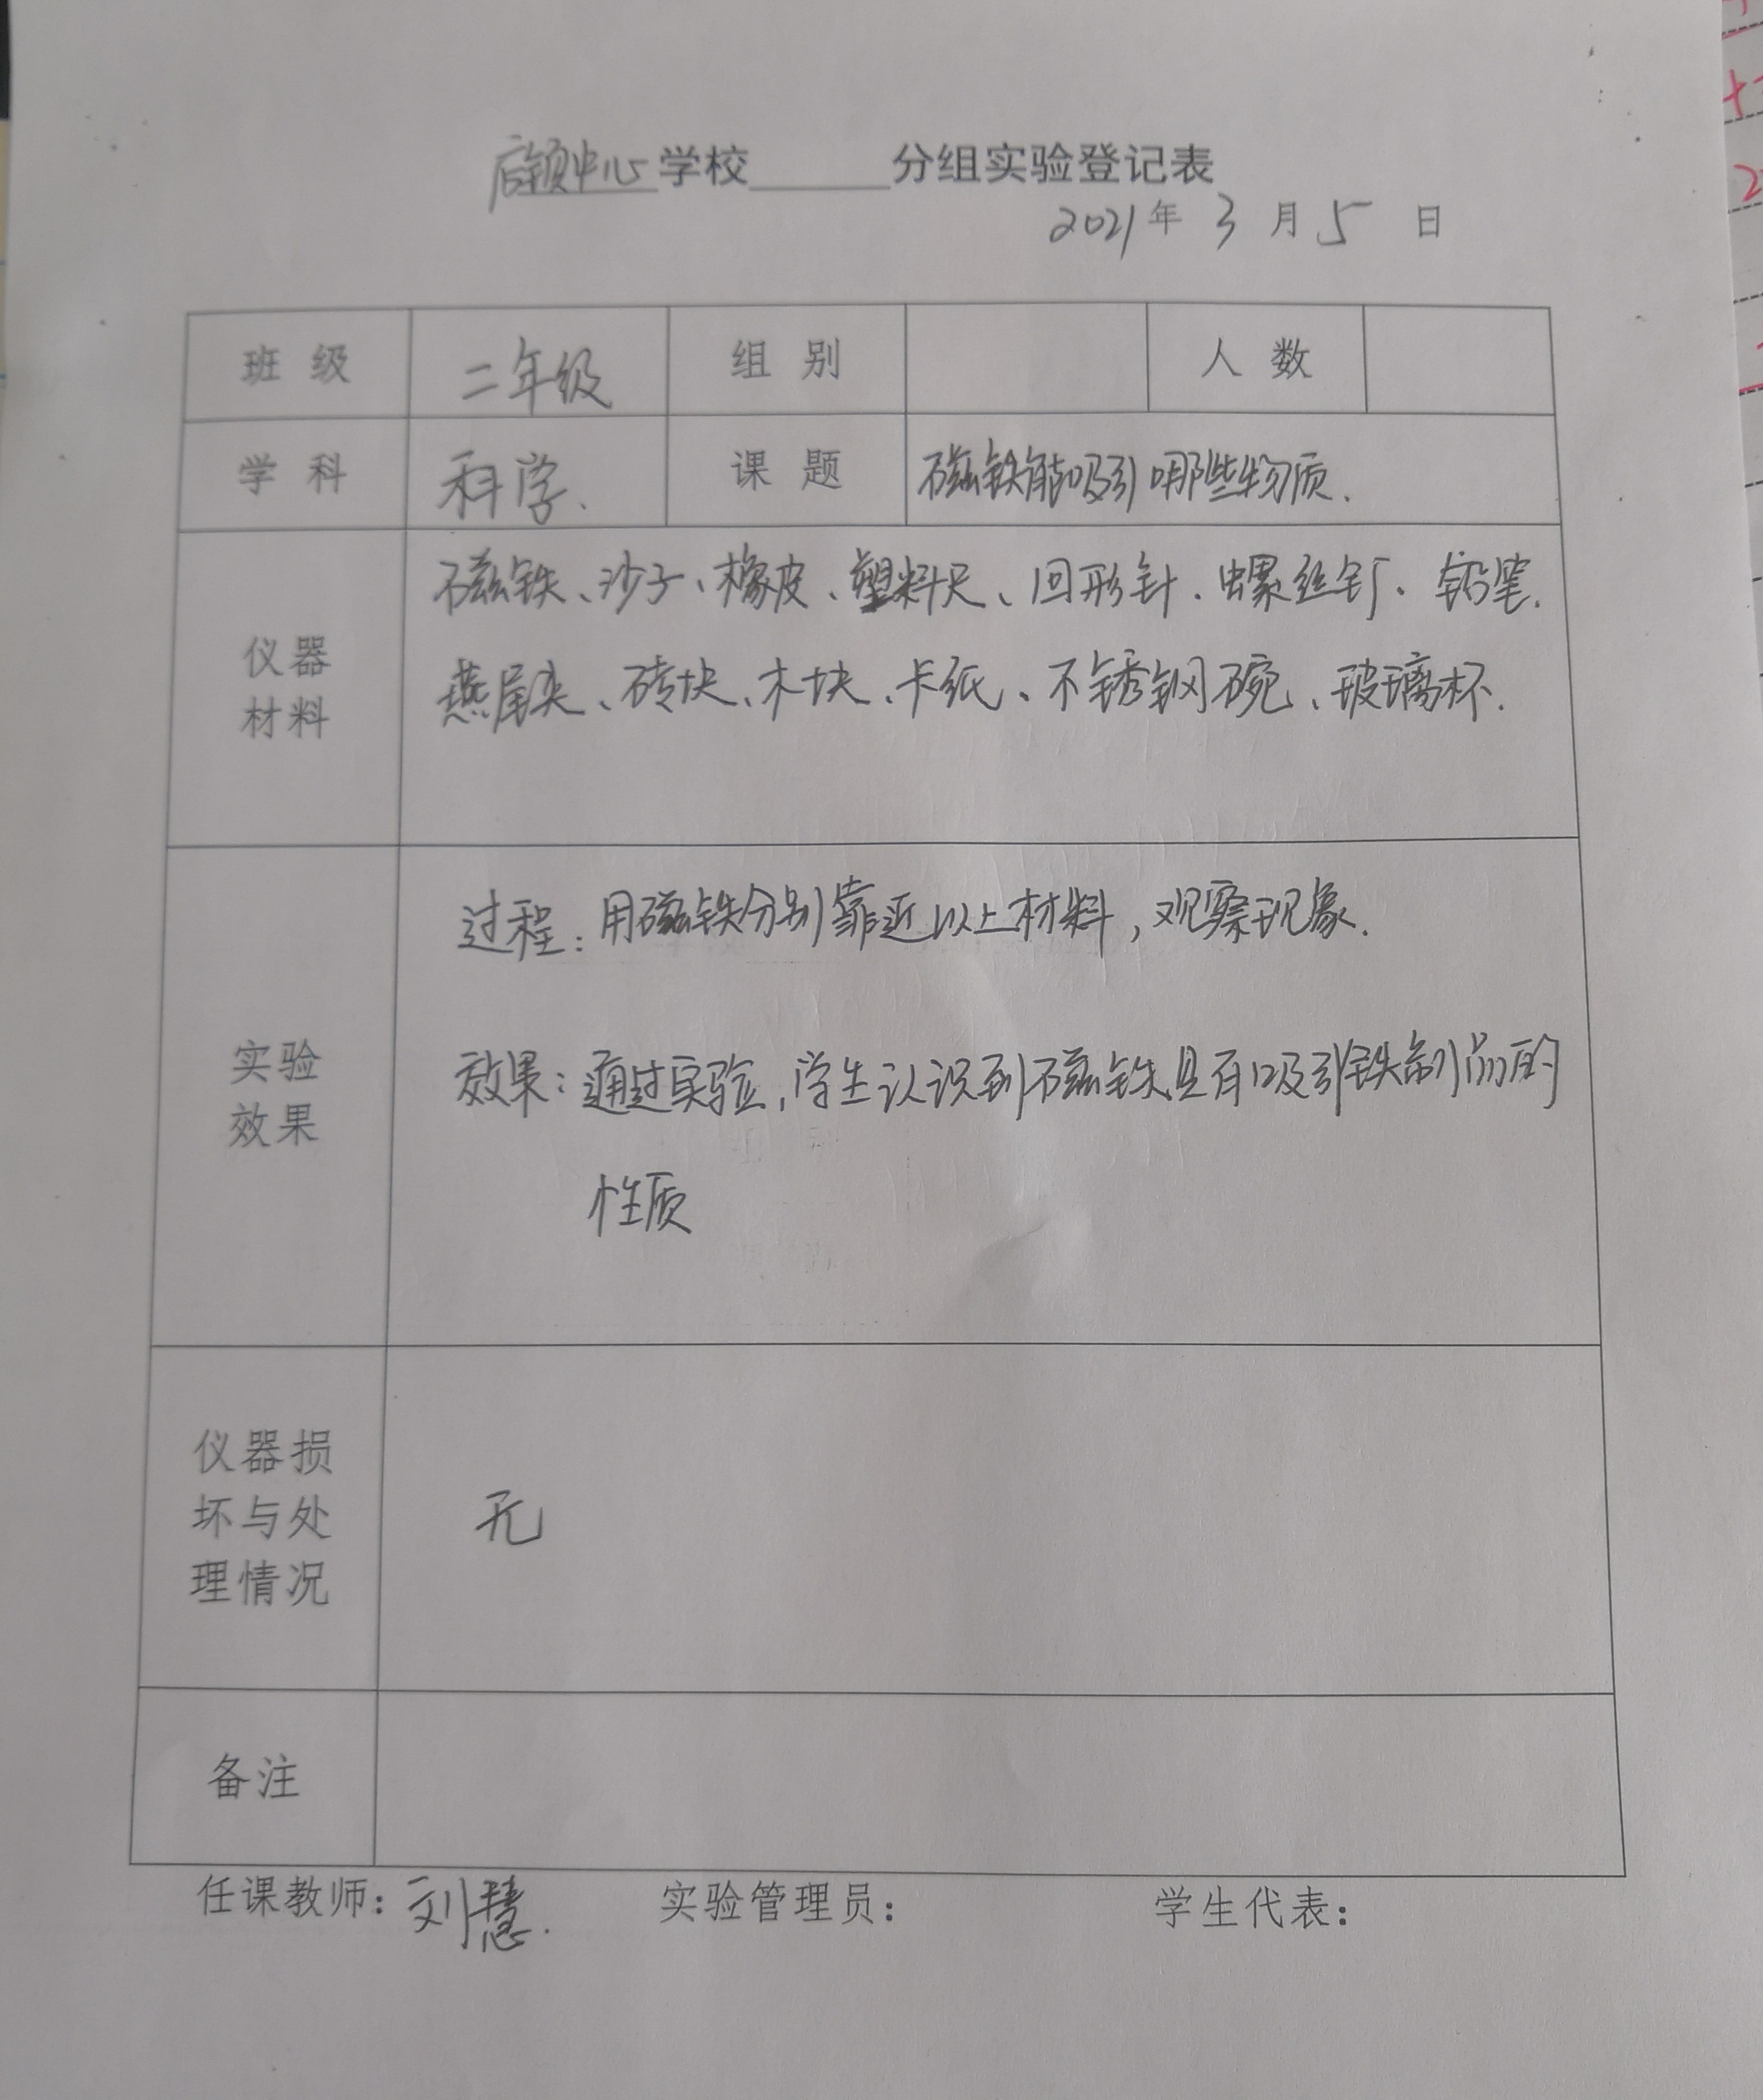 后镇中心学校______分组实验登记表
2021年 3 月 5 日
班 级 二年级 组 别 人 数
学 科 科学. 课 题 磁铁能吸引哪些物质.
仪器
材料
磁铁、沙子、橡皮、塑料尺、回形针、螺丝钉、铅笔.
燕尾夹、砖块、木块、卡纸、不锈钢碗、玻璃杯.
实验
效果
过程:用磁铁分别靠近以上材料,观察现象.
效果:通过实验,学生认识到磁铁具有吸引铁制品的
性质
仪器损
坏与处
理情况
无
备注
任课教师:刘慧. 实验管理员: 学生代表: